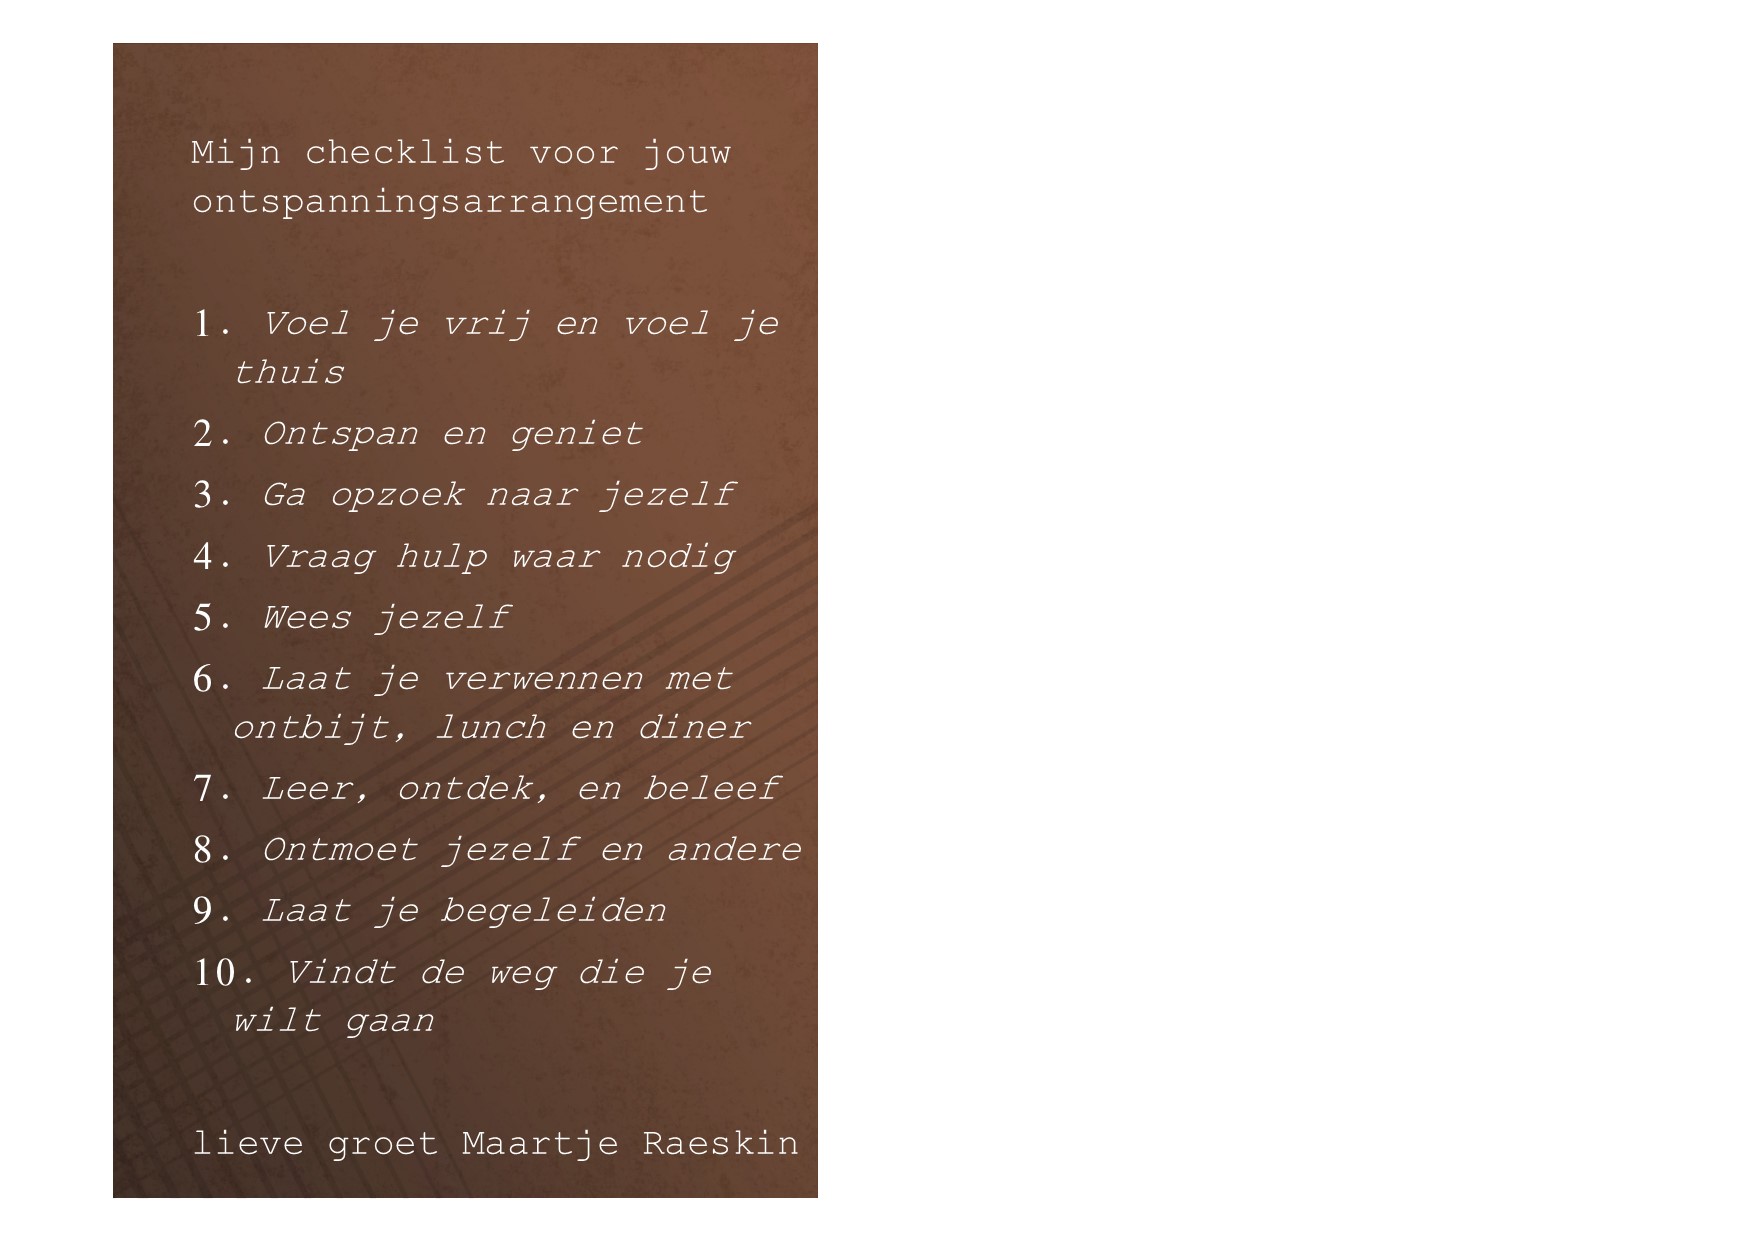 Mijn checklist voor jouw
ontspanningsarrangement
1. Voel je vrij en voel je
thuis
2. Ontspan en geniet
3. Ga opzoek naar jezelf
4. Vraag hulp waar nodig
5. Wees jezelf
6. Laat je verwennen met
ontbijt, lunch en diner
7. Leer, ontdek, en beleef
8. Ontmoet jezelf en andere
9. Laat je begeleiden
10. Vindt de weg die je
wilt gaan
lieve groet Maartje Raeskin